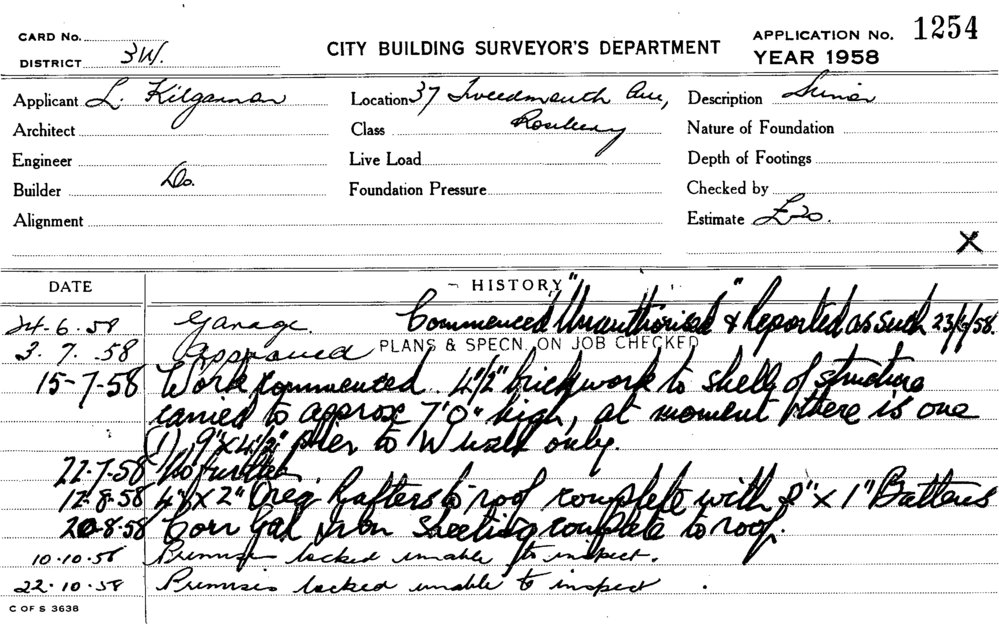 CARD No.
DISTRICT 3W.
CITY BUILDING SURVEYOR'S DEPARTMENT
APPLICATION No. 1254
YEAR 1958
Applicant L. Kilgannon
Location 37 Tweedmouth Ave,
Description Minor
Architect
Class Rosebery
Nature of Foundation
Engineer
Live Load
Depth of Footings
Builder Do.
Foundation Pressure
Checked by
Alignment
Estimate £20.
X
DATE
HISTORY
24-6-58 Garage. Commenced "Unauthorised" & Reported as such 23/6/58.
3.7.58 Approved PLANS & SPECN. ON JOB CHECKED
15-7-58 Work commenced. 4½" brickwork to shell of structure
carried to approx 7'0" high, at moment there is one
(1) 9"x4½" pier to W wall only.
22-7-58 No further
12-8-58 4"x2" Oreg. Rafters to roof complete with 2"x1" Battens
20-8-58 Corr Gal Iron Sheeting complete to roof.
10-10-58 Premises locked unable to inspect.
22-10-58 Premises locked unable to inspect.
C OF S 3638